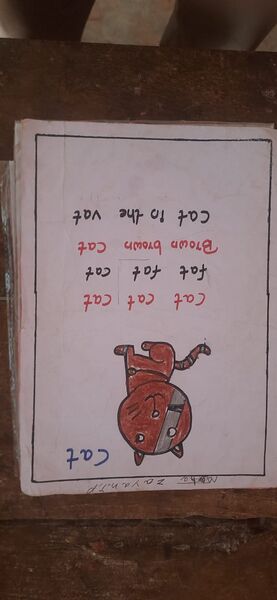 zayan.T.P
Cat
Cat cat cat
fat fat cat
Brown brown cat
Cat the vat